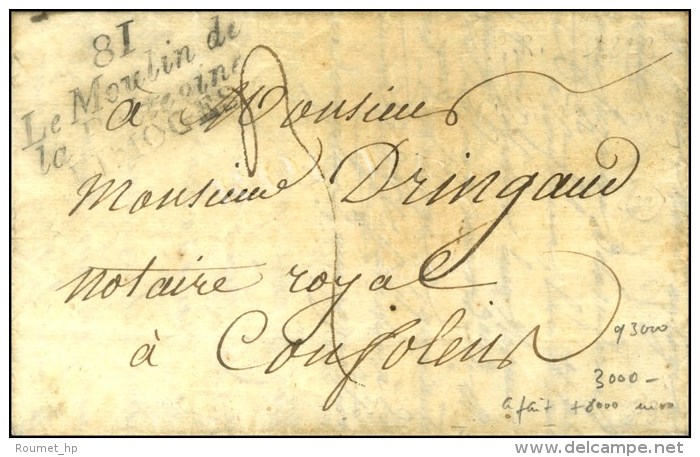 81
Le Moulin de
la
LIMOGES
à Monsieur
Monsieur Dringaud
notaire royal
à Confolens
93000
3000 -
à fait + 8000
Roumet_hp
www.delcampe.net